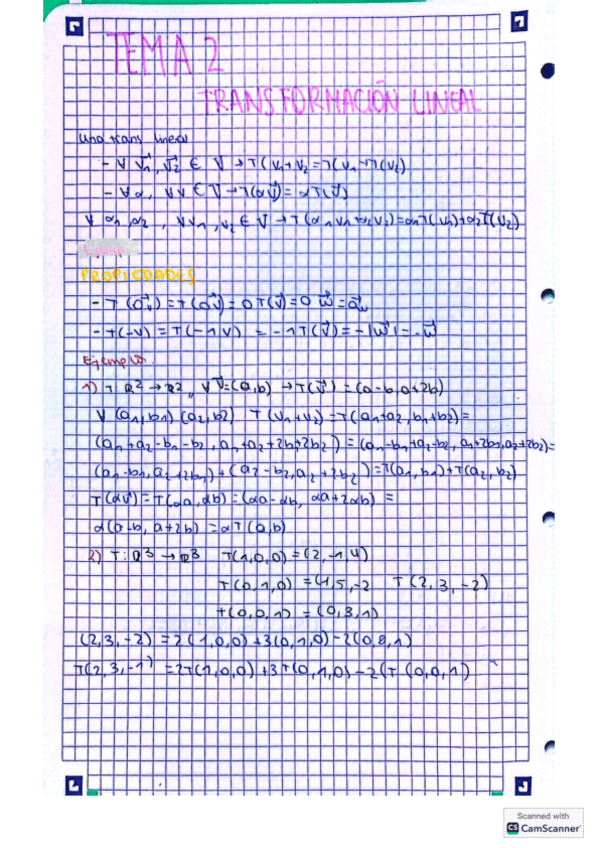 TEMA 2
TRANSFORMACIÓN LINEAL
Una trans lineal
- ∀ v⃗1, v⃗2 ∈ V → T(v1+v2 = T(v1 + T(v2)
- ∀α, ∀v ∈ V → T(αv⃗) = αT(v⃗)
∀ α1, α2, ∀v1, v2 ∈ V → T(α1v1 + α2v2) = α1T(v1) + α2T(v2)
PROPIEDADES
- T(0⃗v) = T(0v⃗) = 0T(v⃗) = 0 w⃗ = 0⃗w
- T(-v) = T(-1v) = -1T(v⃗) = -1w⃗1 = -w⃗
Ejemplos
1) T: R² → R², ∀ v⃗ = (a,b) → T(v⃗) = (a-b, a+2b)
∀ (a1,b1) (a2,b2) T(v1+v2) = T(a1+a2, b1+b2) =
(a1+a2-b1-b2, a1+a2+2b1+2b2) = (a1-b1+a2-b2, a1+2b1, a2+2b2) =
(a1-b1, a2+2b1) + (a2-b2, a2+2b2) = T(a1,b1) + T(a2,b2)
T(αv⃗) = T(αa, αb) = (αa-αb, αa+2αb) =
α(a-b, a+2b) = αT(a,b)
2) T: R³ → R³ T(1,0,0) = (2,-1,4)
T(0,1,0) = (1,5,-2 T(2,3,-2)
T(0,0,1) = (0,3,1)
(2,3,-2) = 2(1,0,0) + 3(0,1,0) - 2(0,0,1)
T(2,3,-1) = 2T(1,0,0) + 3T(0,1,0) - 2(T(0,0,1)
Scanned with
CS CamScanner